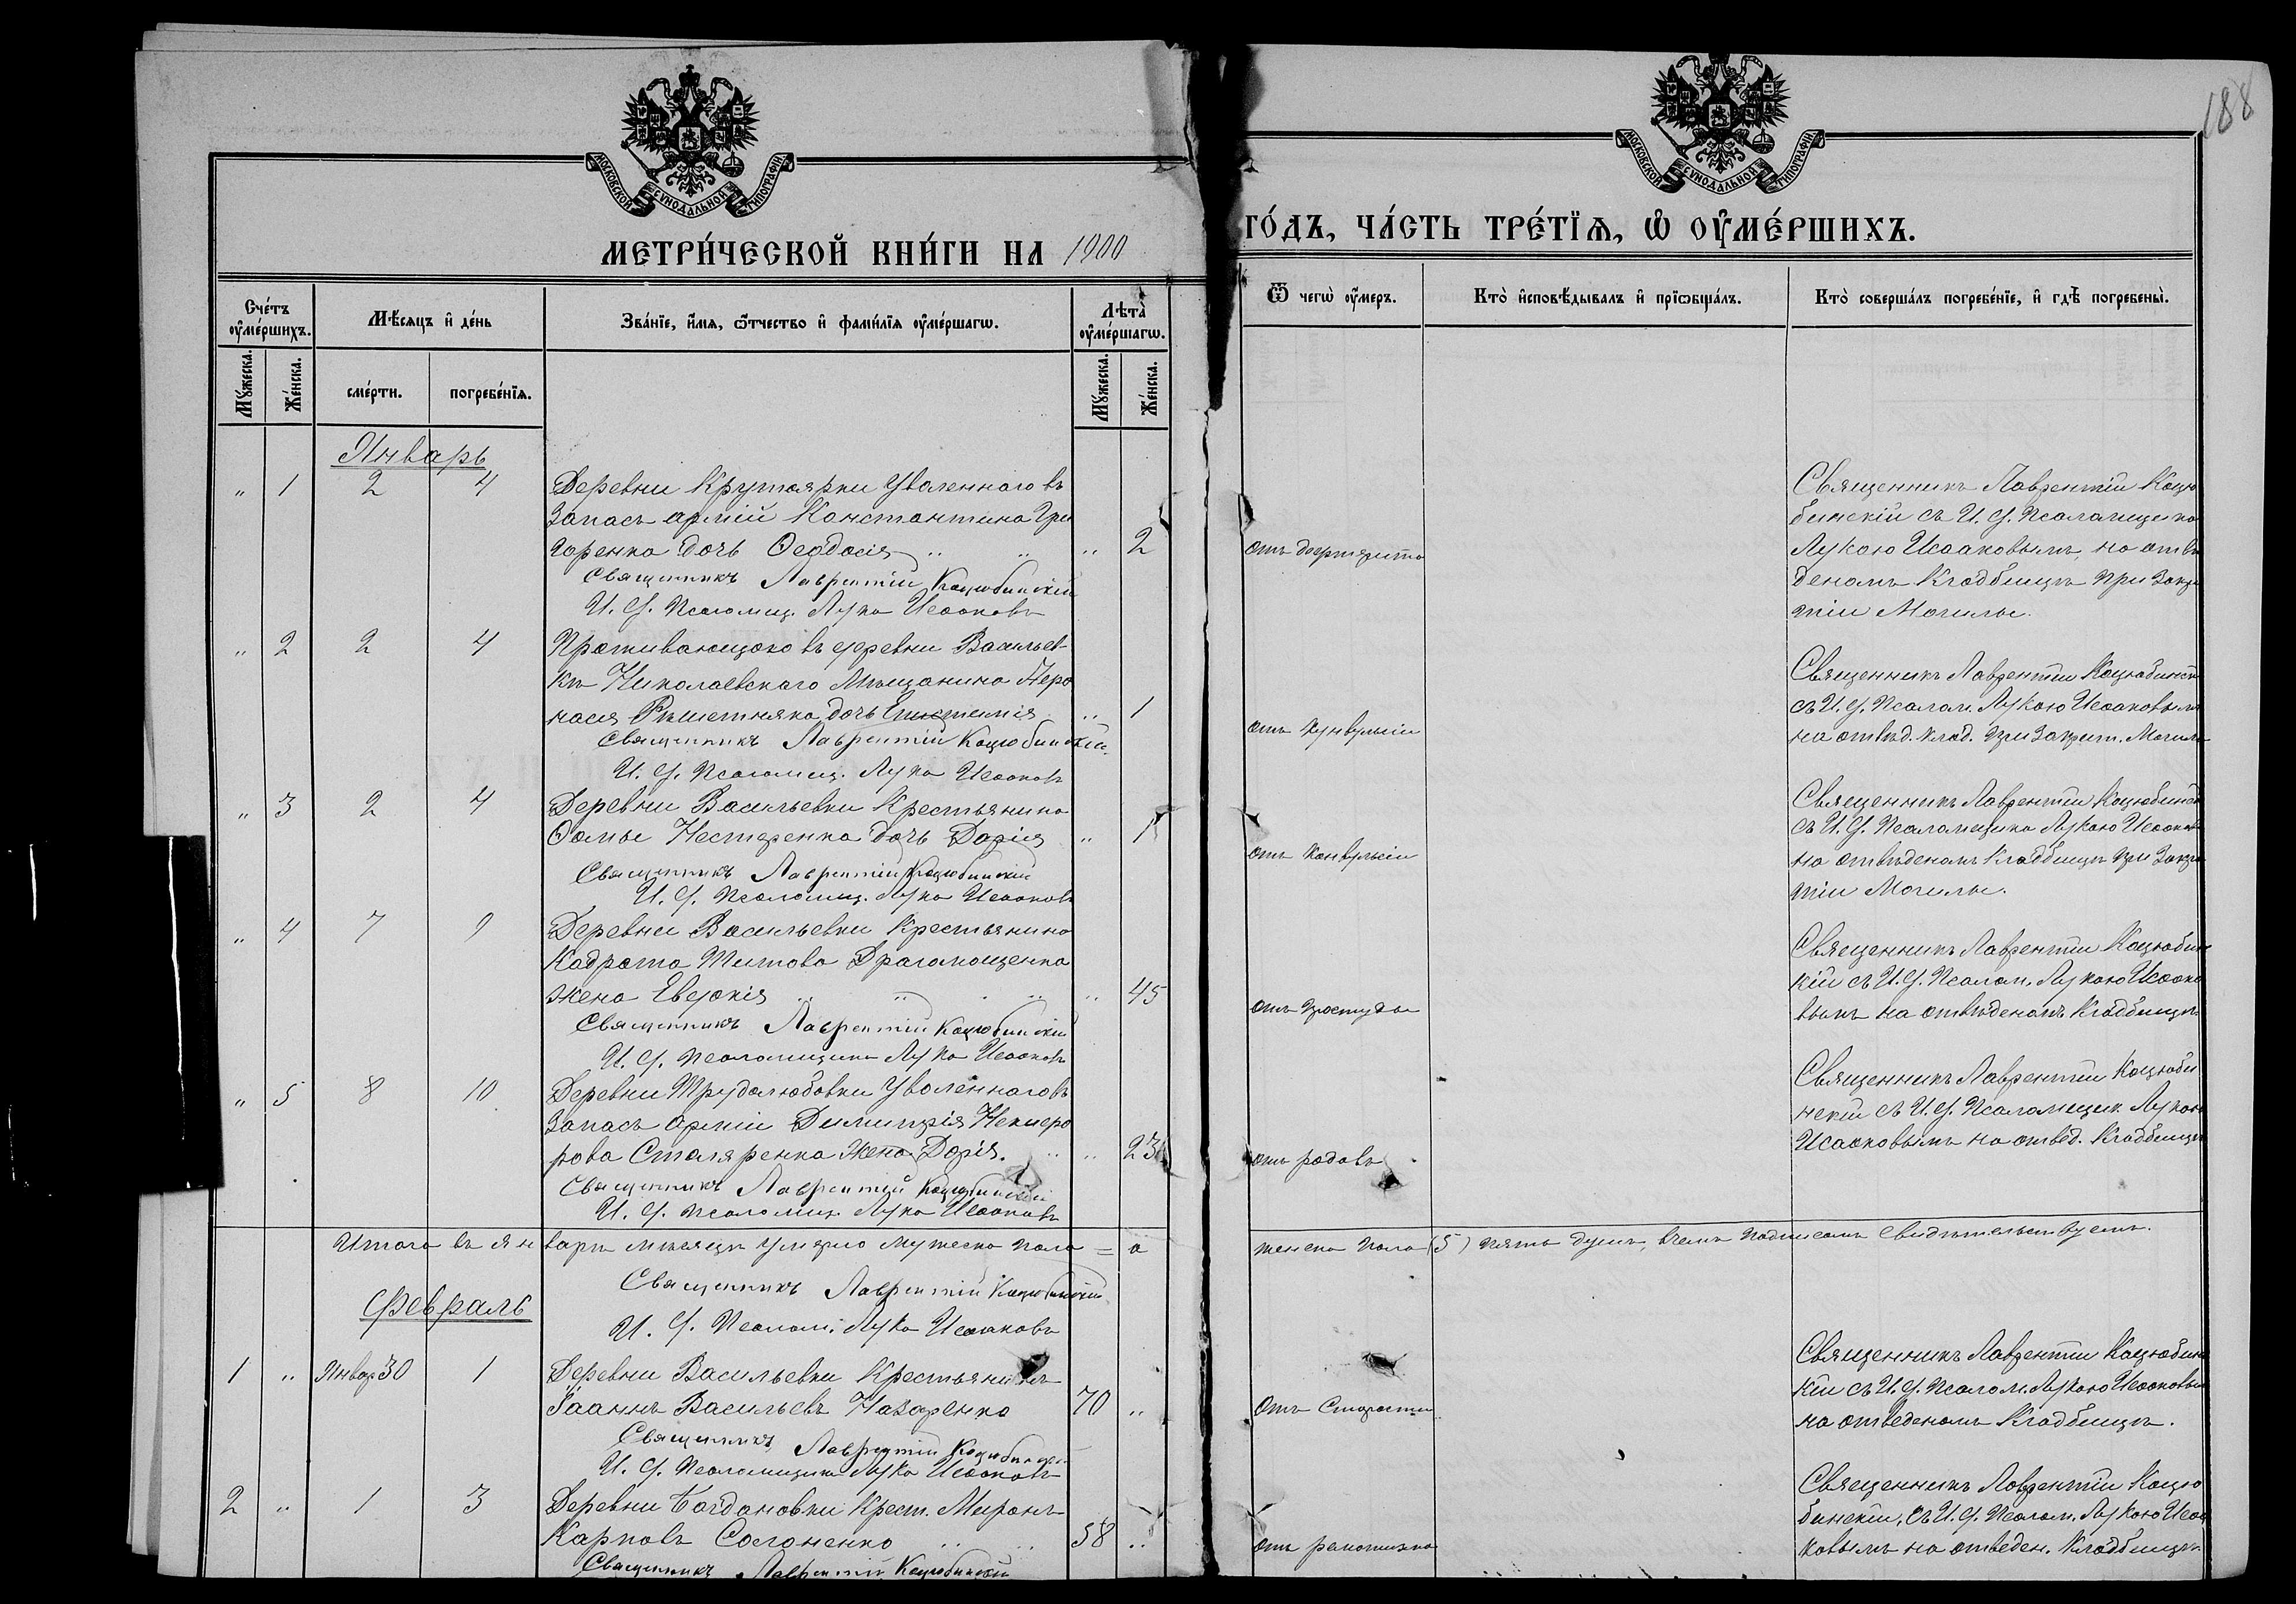 188
МОСКОВСКОЙ СУНОДАЛЬНОЙ ТИПОГРАФІИ
МОСКОВСКОЙ СУНОДАЛЬНОЙ ТИПОГРАФІИ
МЕТРИ́ЧЕСКОЙ КНИ́ГИ НА 1900
ГО́ДЪ, ЧА́СТЬ ТРЕ́ТЇѦ, Ѡ҆ ОУ҆МЕ́РШИХЪ.
Сче́тъ оу҆ме́ршихъ.
Мꙋ́жеска.
Же́нска.
Мѣ́сяцъ и҆ де́нь
сме́рти.
погребе́нїѧ.
Зва́нїе, и҆́мѧ, ѻ҆́тчество и҆ фами́лїѧ оу҆ме́ршагѡ.
Лѣ̀та оу҆ме́ршагѡ.
Мꙋ́жеска.
Же́нска.
Ѿ чегѡ̀ оу҆́меръ.
Кто̀ и҆сповѣ́дывалъ и҆ прїѡбща́лъ.
Кто̀ соверша́лъ погребе́нїе, и҆ гдѣ̀ погребены̀.
Январь
" 1 2 4 Деревни Крутоярки Уволеннаго въ
запасъ арміи Константина Гри
горенко дочь Ѳеодосія " 2
Священникъ Лаврентій Коцюбинскій
И. д. Псаломщ. Лука Исааковъ
отъ
Священникъ Лаврентій Коцю
бинскій съ И. д. Псаломщика
Лукою Исааковымъ на отве
деномъ Кладбищѣ при Закры
тіи Могилы.
" 2 2 4 Проживающаго въ деревни Васильев-
кѣ Николаевскаго Мѣщанина
дочь " 1
Священникъ Лаврентій Коцюбинскій
И. д. Псаломщ. Лука Исааковъ
отъ
Священникъ Лаврентій Коцюбинск
съ И. д. Псалом. Лукою Исааковымъ
на отвед. клад. при Закрыт. Могилы
" 3 2 4 Деревни Васильевки Крестьянина
Ѳомы Нестеренка дочь Дарія " 1
Священникъ Лаврентій Коцюбинскій
И. д. Псаломщ. Лука Исааковъ
отъ Конвульсіи
Священникъ Лаврентій Коцюбинск
съ И. д. Псаломщика Лукою Исааков
на отведеномъ Кладбищѣ при Закры
тіи Могилы.
" 4 7 9 Деревни Васильевки Крестьянина
Кадрата Титова Драгомощенка
жена Евдокія " 45
Священникъ Лаврентій Коцюбинскій
И. д. Псаломщика Лука Исааковъ
отъ Простуды
Священникъ Лаврентій Коцюбин
кій съ И. д. Псалом. Лукою Исаако
вымъ на отведеномъ Кладбищѣ
" 5 8 10 Деревни Трудолюбовки Уволеннаго въ
Запасъ арміи Димитрія
Столяренка Жена Дарія. "
Священникъ Лаврентій Коцюбинскій
И. д. Псаломщ. Лука Исааковъ
отъ родовъ
Священникъ Лаврентій Коцюби
нскій съ И. д. Псаломщик. Лукою
Исааковымъ на отвед. Кладбищѣ
Итого въ январѣ мѣсяцѣ умерло мужеска пола = о женска пола (5) пять душъ, въ чемъ подписомъ свидѣтельствуемъ.
Священникъ Лаврентій Коцюбинскій
И. д. Псалом. Лука Исааковъ
Февраль
1 " Январ 30 1 Деревни Васильевки Крестьянинъ
Іоаннъ Васильевъ Назаренко 70 "
Священникъ Лаврентій Коцюбинскій
И. д. Псаломщика Лука Исааковъ
Отъ Старости
Священникъ Лаврентій Коцюбинс
кій съ И. д. Псалом. Лукою Исааковым
на отведеномъ Кладбищѣ.
2 " 1 3 Деревни Богдановки Крест. Миронъ
Карповъ Солоненко 58 "
Священникъ Лаврентій Коцюбинскій
отъ
Священникъ Лаврентій Коцю
бинскій, съ И. д. Псалом. Лукою Исаа
ковымъ на отведен. Кладбищѣ.